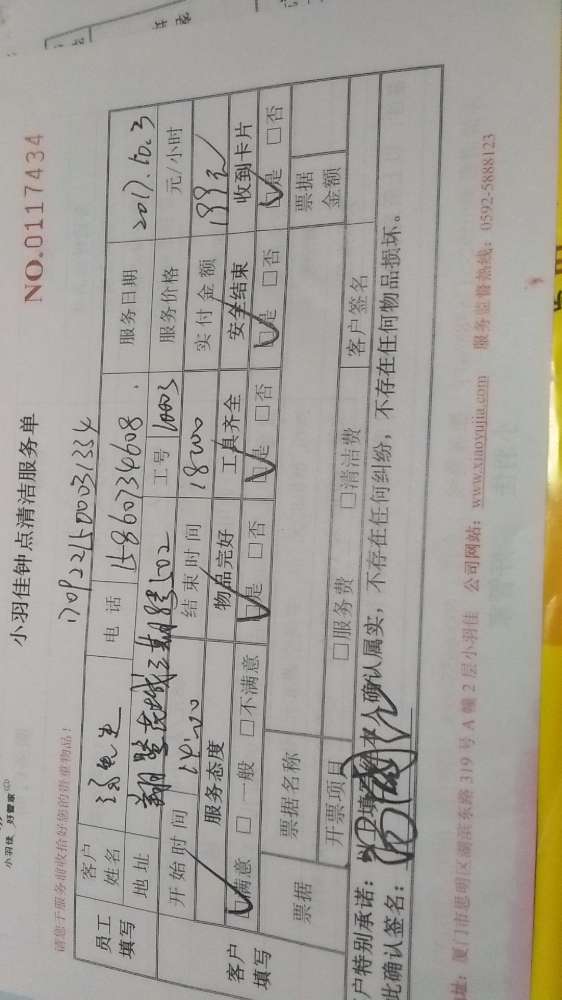 小羽佳 好管家
小羽佳钟点清洁服务单
NO.0117434
请您于服务前收拾好您的贵重物品!
170922150031334
员工填写
客户姓名 先生 电话 15860734608 服务日期 2017.10.3
地址 三期 502 工号 1003 服务价格 元/小时
开始时间 14:00 结束时间 18:00 实付金额 199元
客户填写
服务态度 物品完好 工具齐全 安全结束 收到卡片
☑满意 □一般 □不满意 ☑是 □否 ☑是 □否 ☑是 □否 ☑是 □否
票据 票据名称 票据金额
开票项目 □服务费 □清洁费 客户签名
户特别承诺:以上填写经本人确认属实,不存在任何纠纷,不存在任何物品损坏。
此确认签名:
址:厦门市思明区湖滨东路 319 号 A 幢 2 层小羽佳 公司网站:www.xiaoyujia.com 服务监督热线:0592-5888123